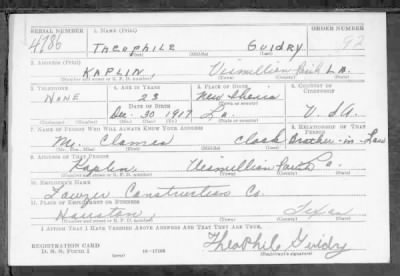 SERIAL NUMBER 1. NAME (Print) ORDER NUMBER
4986 THEOPHILE GUIDRY 92
(First) (Middle) (Last)
2. ADDRESS (Print)
KAPLIN, Vermillion Parish LA.
(Number and street or R. F. D. number) (Town) (County) (State)
3. TELEPHONE 4. AGE IN YEARS 5. PLACE OF BIRTH 6. COUNTRY OF CITIZENSHIP
NONE 23 New Iberia
DATE OF BIRTH (Town or county)
Dec. 30 1917 La. U.S.A.
(Mo.) (Day) (Yr.) (State or country)
7. NAME OF PERSON WHO WILL ALWAYS KNOW YOUR ADDRESS 8. RELATIONSHIP OF THAT PERSON
Mr. Brother-in-Law
(Mr., Mrs., Miss) (First) (Middle) (Last)
9. ADDRESS OF THAT PERSON
Kaplin Vermillion Parish La.
(Number and street or R. F. D. number) (Town) (County) (State)
10. EMPLOYER'S NAME
Construction Co.
11. PLACE OF EMPLOYMENT OR BUSINESS
Houston, Texas
(Number and street or R. F. D. number) (Town) (County) (State)
I AFFIRM THAT I HAVE VERIFIED ABOVE ANSWERS AND THAT THEY ARE TRUE.
REGISTRATION CARD
D. S. S. Form 1 16-17105 Theophile Guidry
(Registrant's signature)